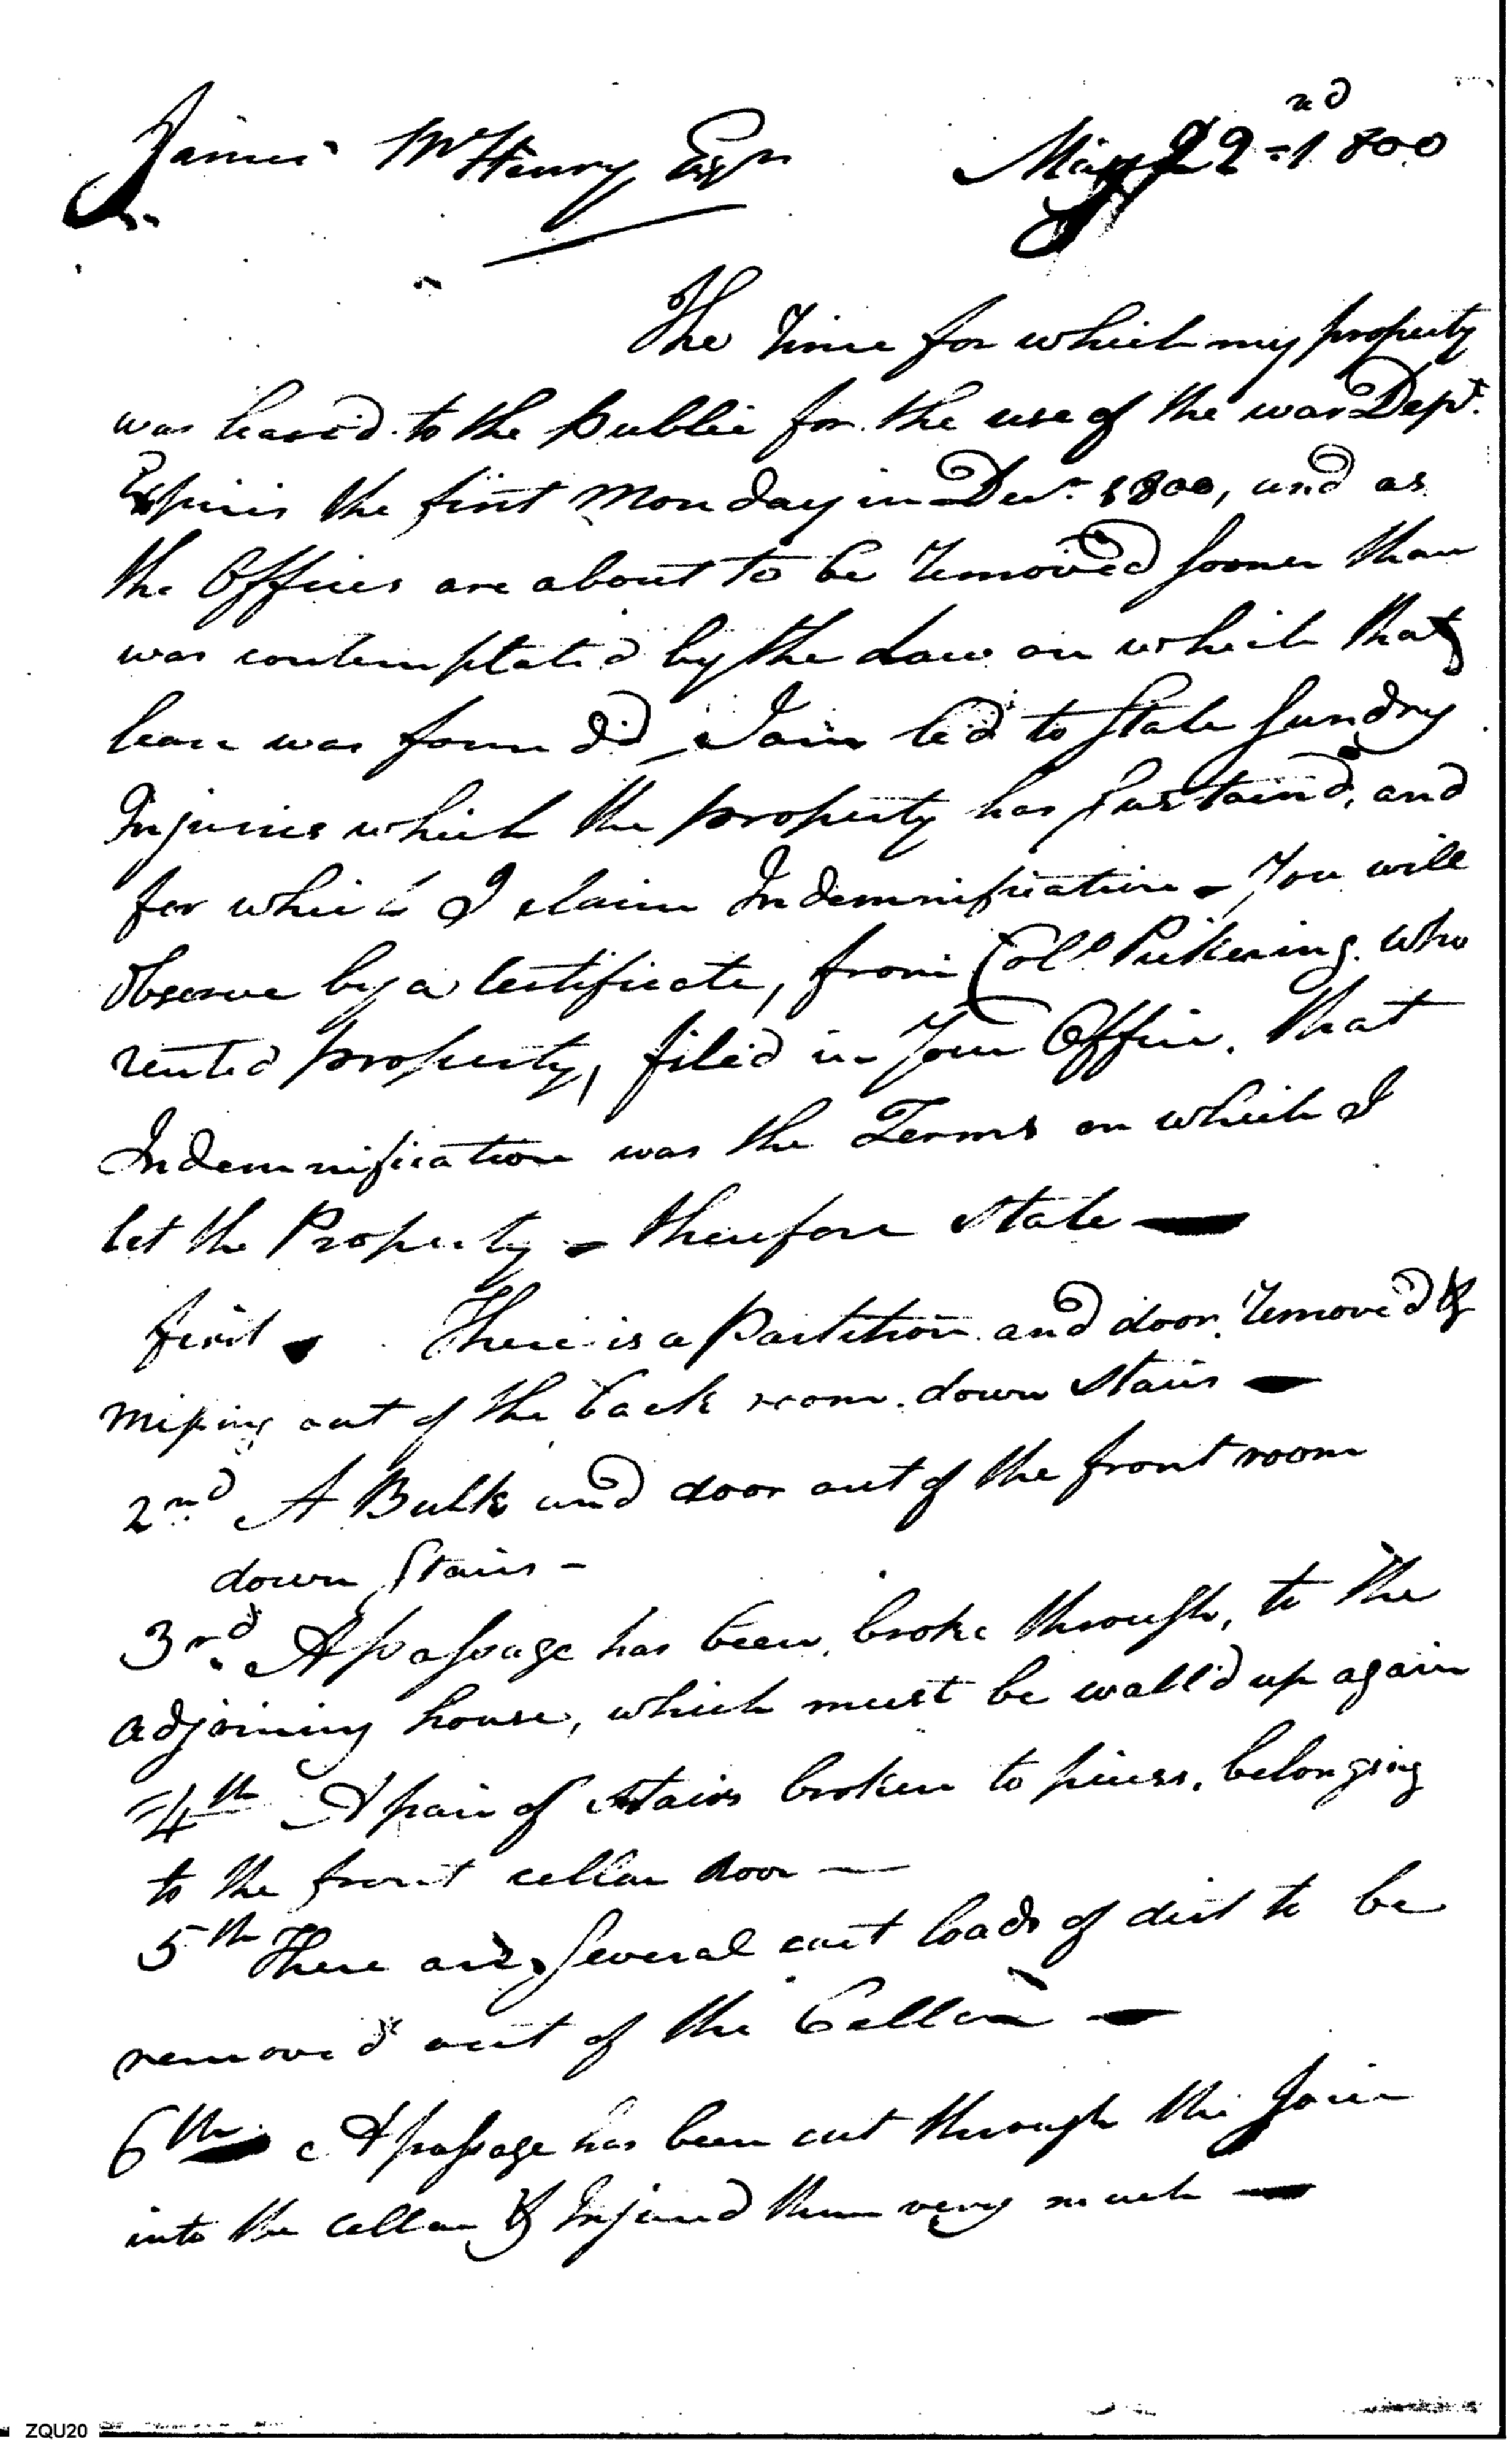 James McHenry Esqr May 22nd 1800
The time for which my property
was leased to the public for the use of the war Dept.
Expires the first Monday in Decr. 1800, and as
the Offices are about to be removed sooner than
was contemplated by the Law on which that
lease was founded, I am led to state sundry
Injuries which the property has sustaind, and
for which I claim Indemnification - You will
observe by a Certificate, from Coll. Pickering. who
rented property, filed in Your Office. that
Indemnification was the Terms on which I
let the Property - therefore state —
first - There is a Partition and door removed &
missing out of the back room down stairs —
2nd A Bulk and door out of the front room
down stairs -
3rd. A passage has been broke through, to the
adjoining house, which must be wall'd up again
4th A pair of stairs broken to pieces, belonging
to the front cellar door —
5th There are several cart loads of dirt to be
removed out of the Cellar —
6th A passage has been cut through the
into the cellar & Injured them very much —
ZQU20